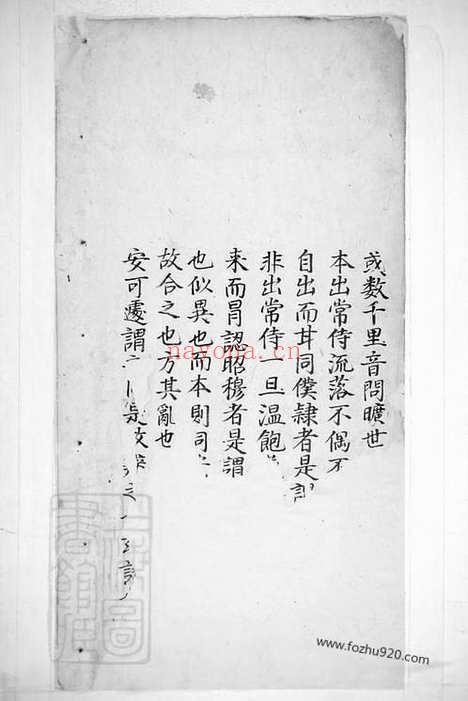 或數千里音問曠世
本出常侍流落不偶不
自出而甘同僕隷者是謂
非出常侍一旦溫飽
来而冒認昭穆者是謂
也似異也而本則同
故合之也方其亂也
安可遽謂
nayona.cn
www.fozhu920.com